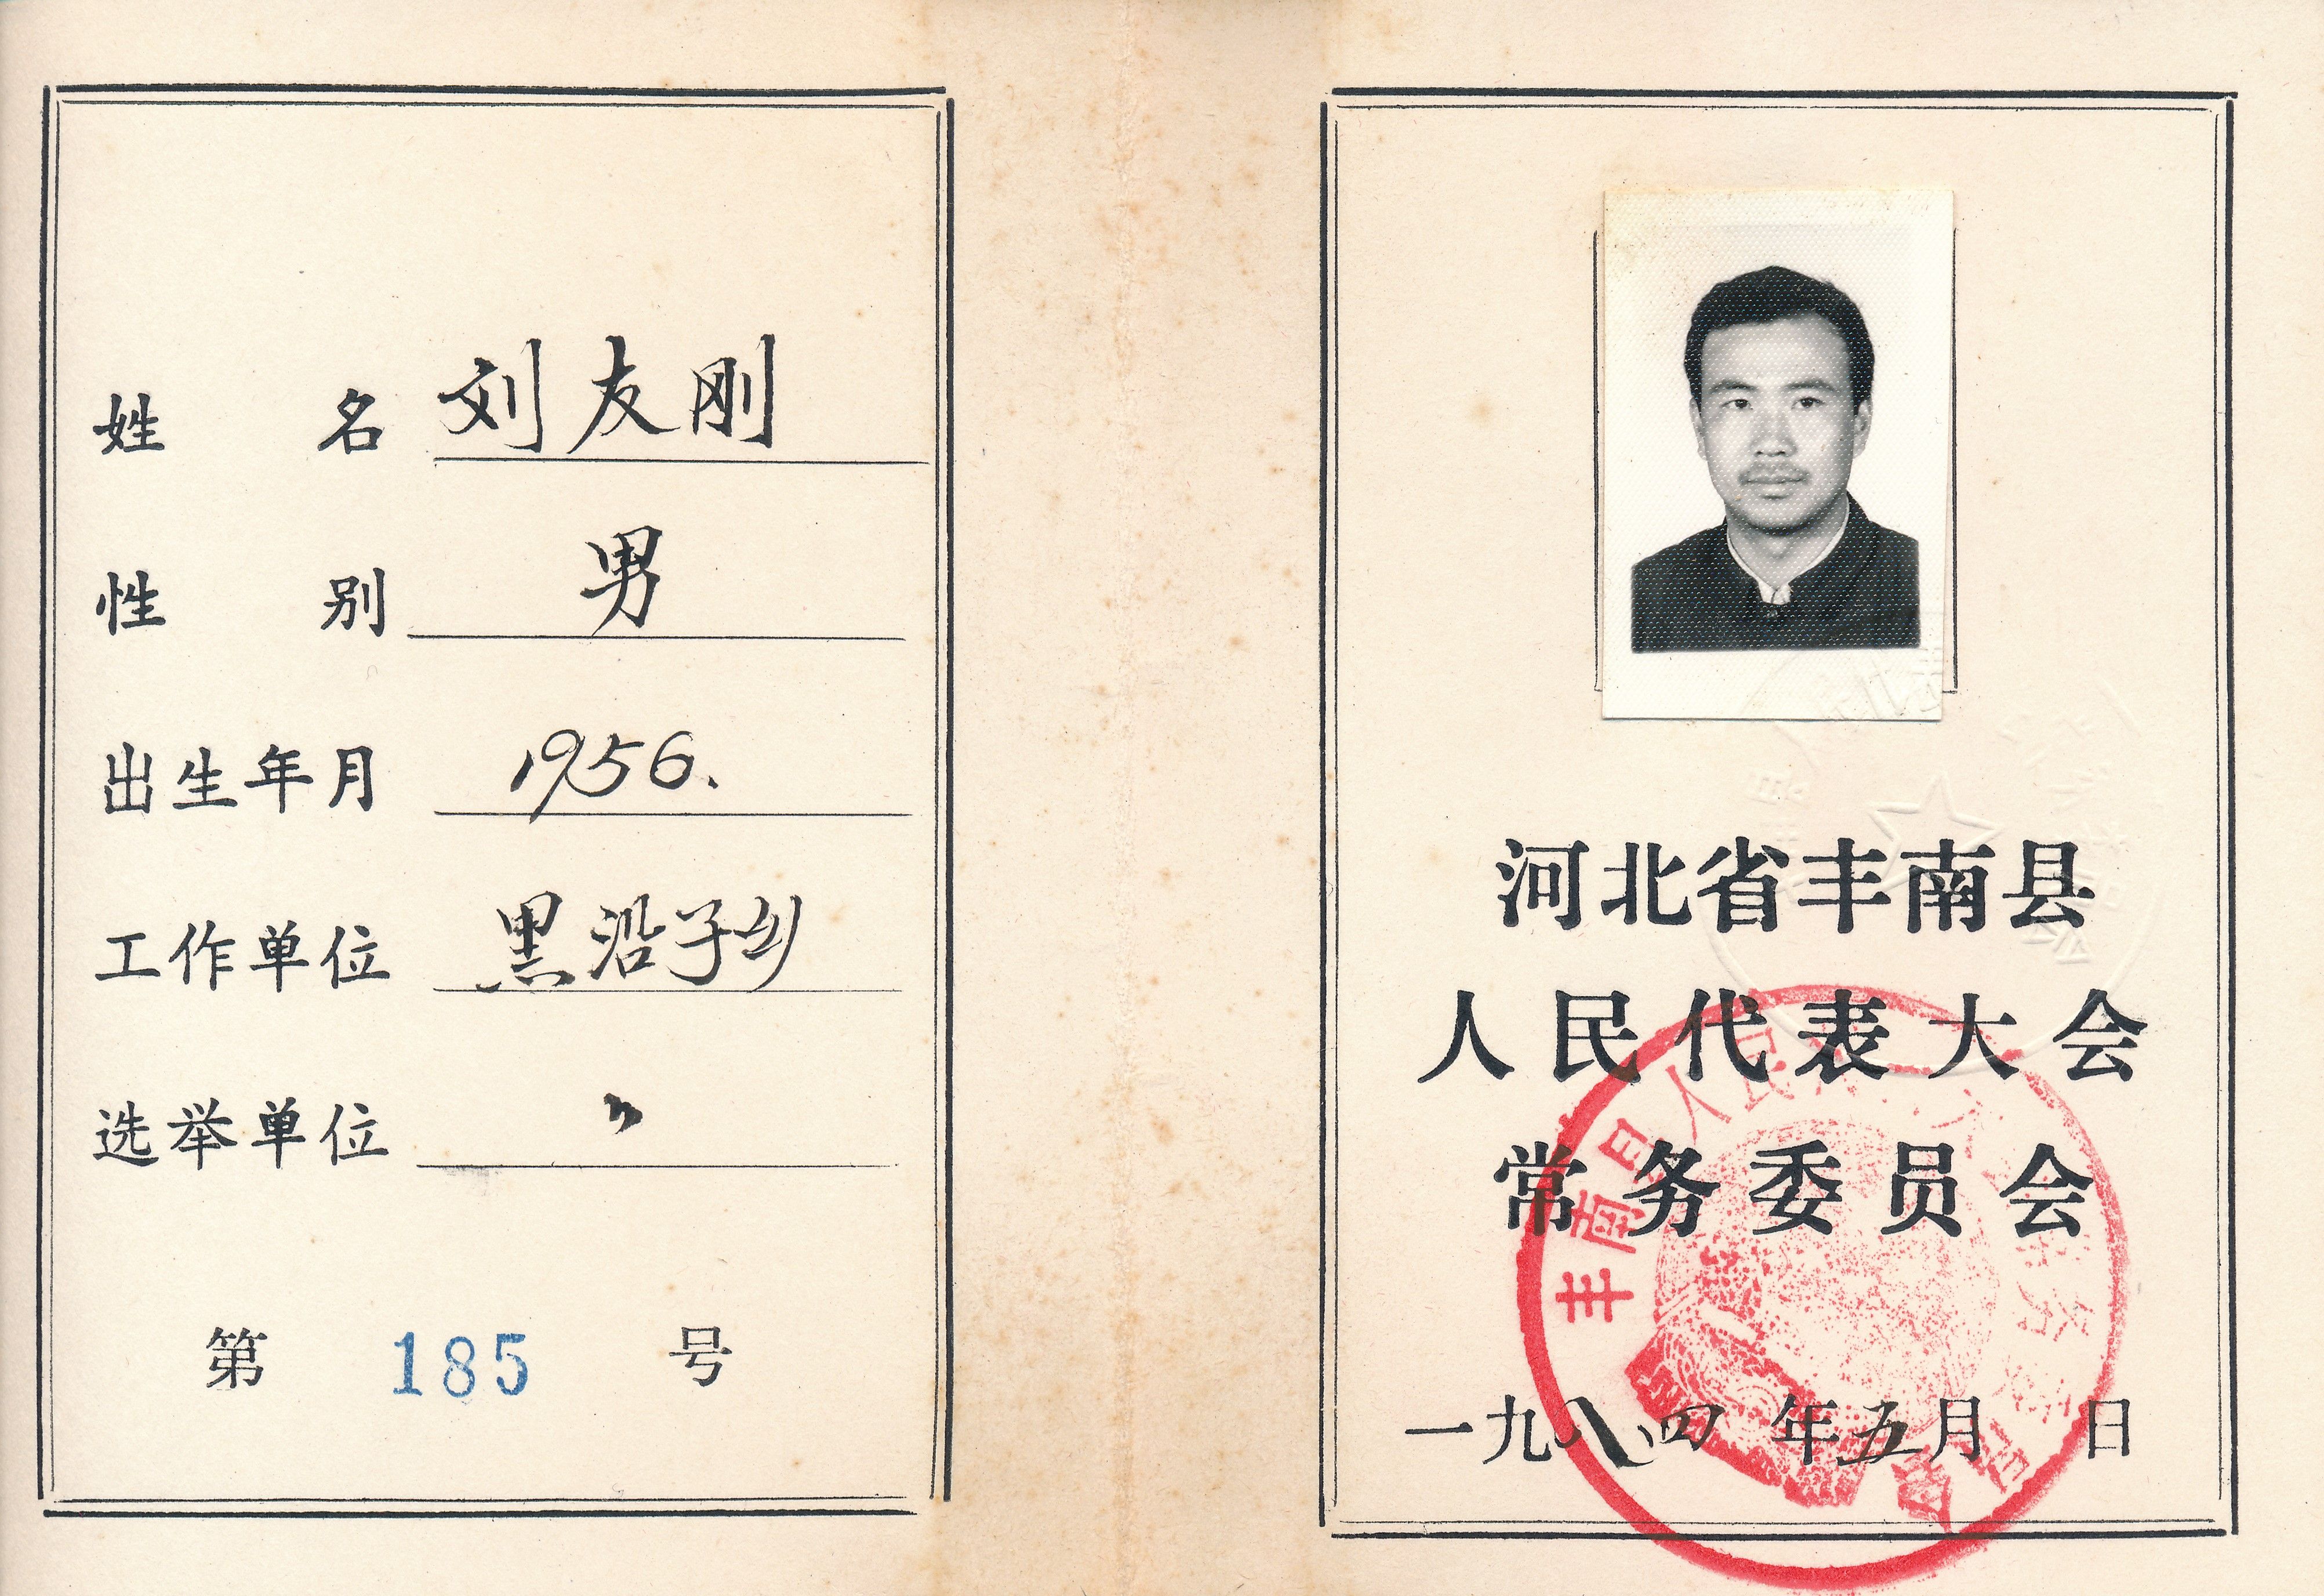 姓名 刘友刚
性别 男
出生年月 1956.
工作单位 黑沿子乡
选举单位 〃
第 185 号
河北省丰南县
人民代表大会
常务委员会
丰南县人民
一九八四年五月 日